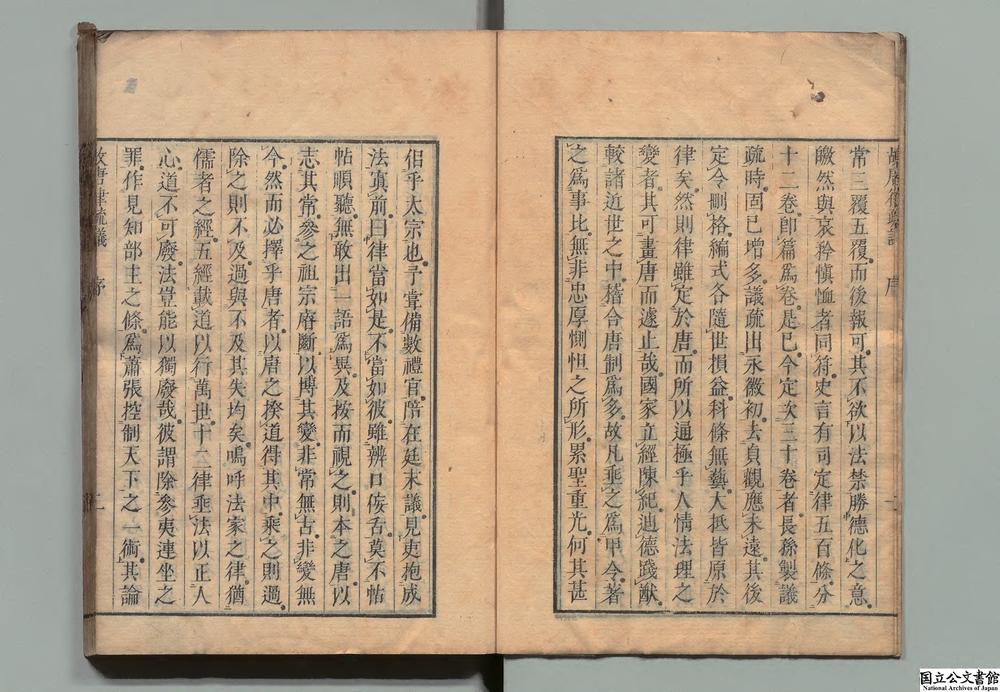 常三覆五覆而後報可其不欲以法禁勝德化之意
皦然與哀矜愼恤者同符史言有司定律五百條分
十二卷卽篇爲卷是已今定次三十卷者長孫製議
疏時固已增多議疏出永徽初去貞觀應未遠其後
定令刪格編式各隨世損益科條無藝大抵皆原於
律矣然則律雖定於唐而所以通極乎人情法理之
變者其可畫唐而遽止哉國家立經陳紀迪德踐猷
較諸近世之中稽合唐制爲多故凡垂之爲甲令著
之爲事比無非忠厚惻怛之所形累聖重光何其甚
佀乎太宗也予嘗備數禮官陪在廷末議見吏抱成
法寘前曰律當如是不當如彼雖辨口佞舌莫不帖
帖順聽無敢出一語爲異及按而視之則本之唐以
志其常參之祖宗睿斷以博其變非常無古非變無
今然而必擇乎唐者以唐之揆道得其中乘之則過
除之則不及過與不及其失均矣嗚呼法家之律猶
儒者之經五經載道以行萬世十二律垂法以正人
心道不可廢法豈能以獨廢哉彼謂除參夷連坐之
罪作見知部主之條爲蕭張控制天下之一術其論
故唐律疏議 序 二
国立公文書館
National Archives of Japan